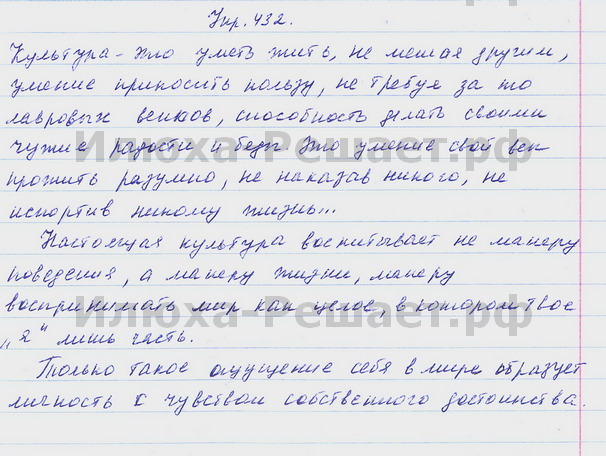 Упр. 432.
Культура - это уметь жить, не мешая другим,
умение приносить пользу, не требуя за то
лавровых венков, способность делать своими
чужие радости и беды. Это умение свой век
прожить разумно, не наказав никого, не
испортив никому жизнь...
Настоящая культура воспитывает не манеру
поведения, а манеру жизни, манеру
воспринимать мир как целое, в котором твое
„я“ лишь часть.
Только такое ощущение себя в мире образует
личность с чувством собственного достоинства.
Илюха-Решает.рф
Илюха-Решает.рф